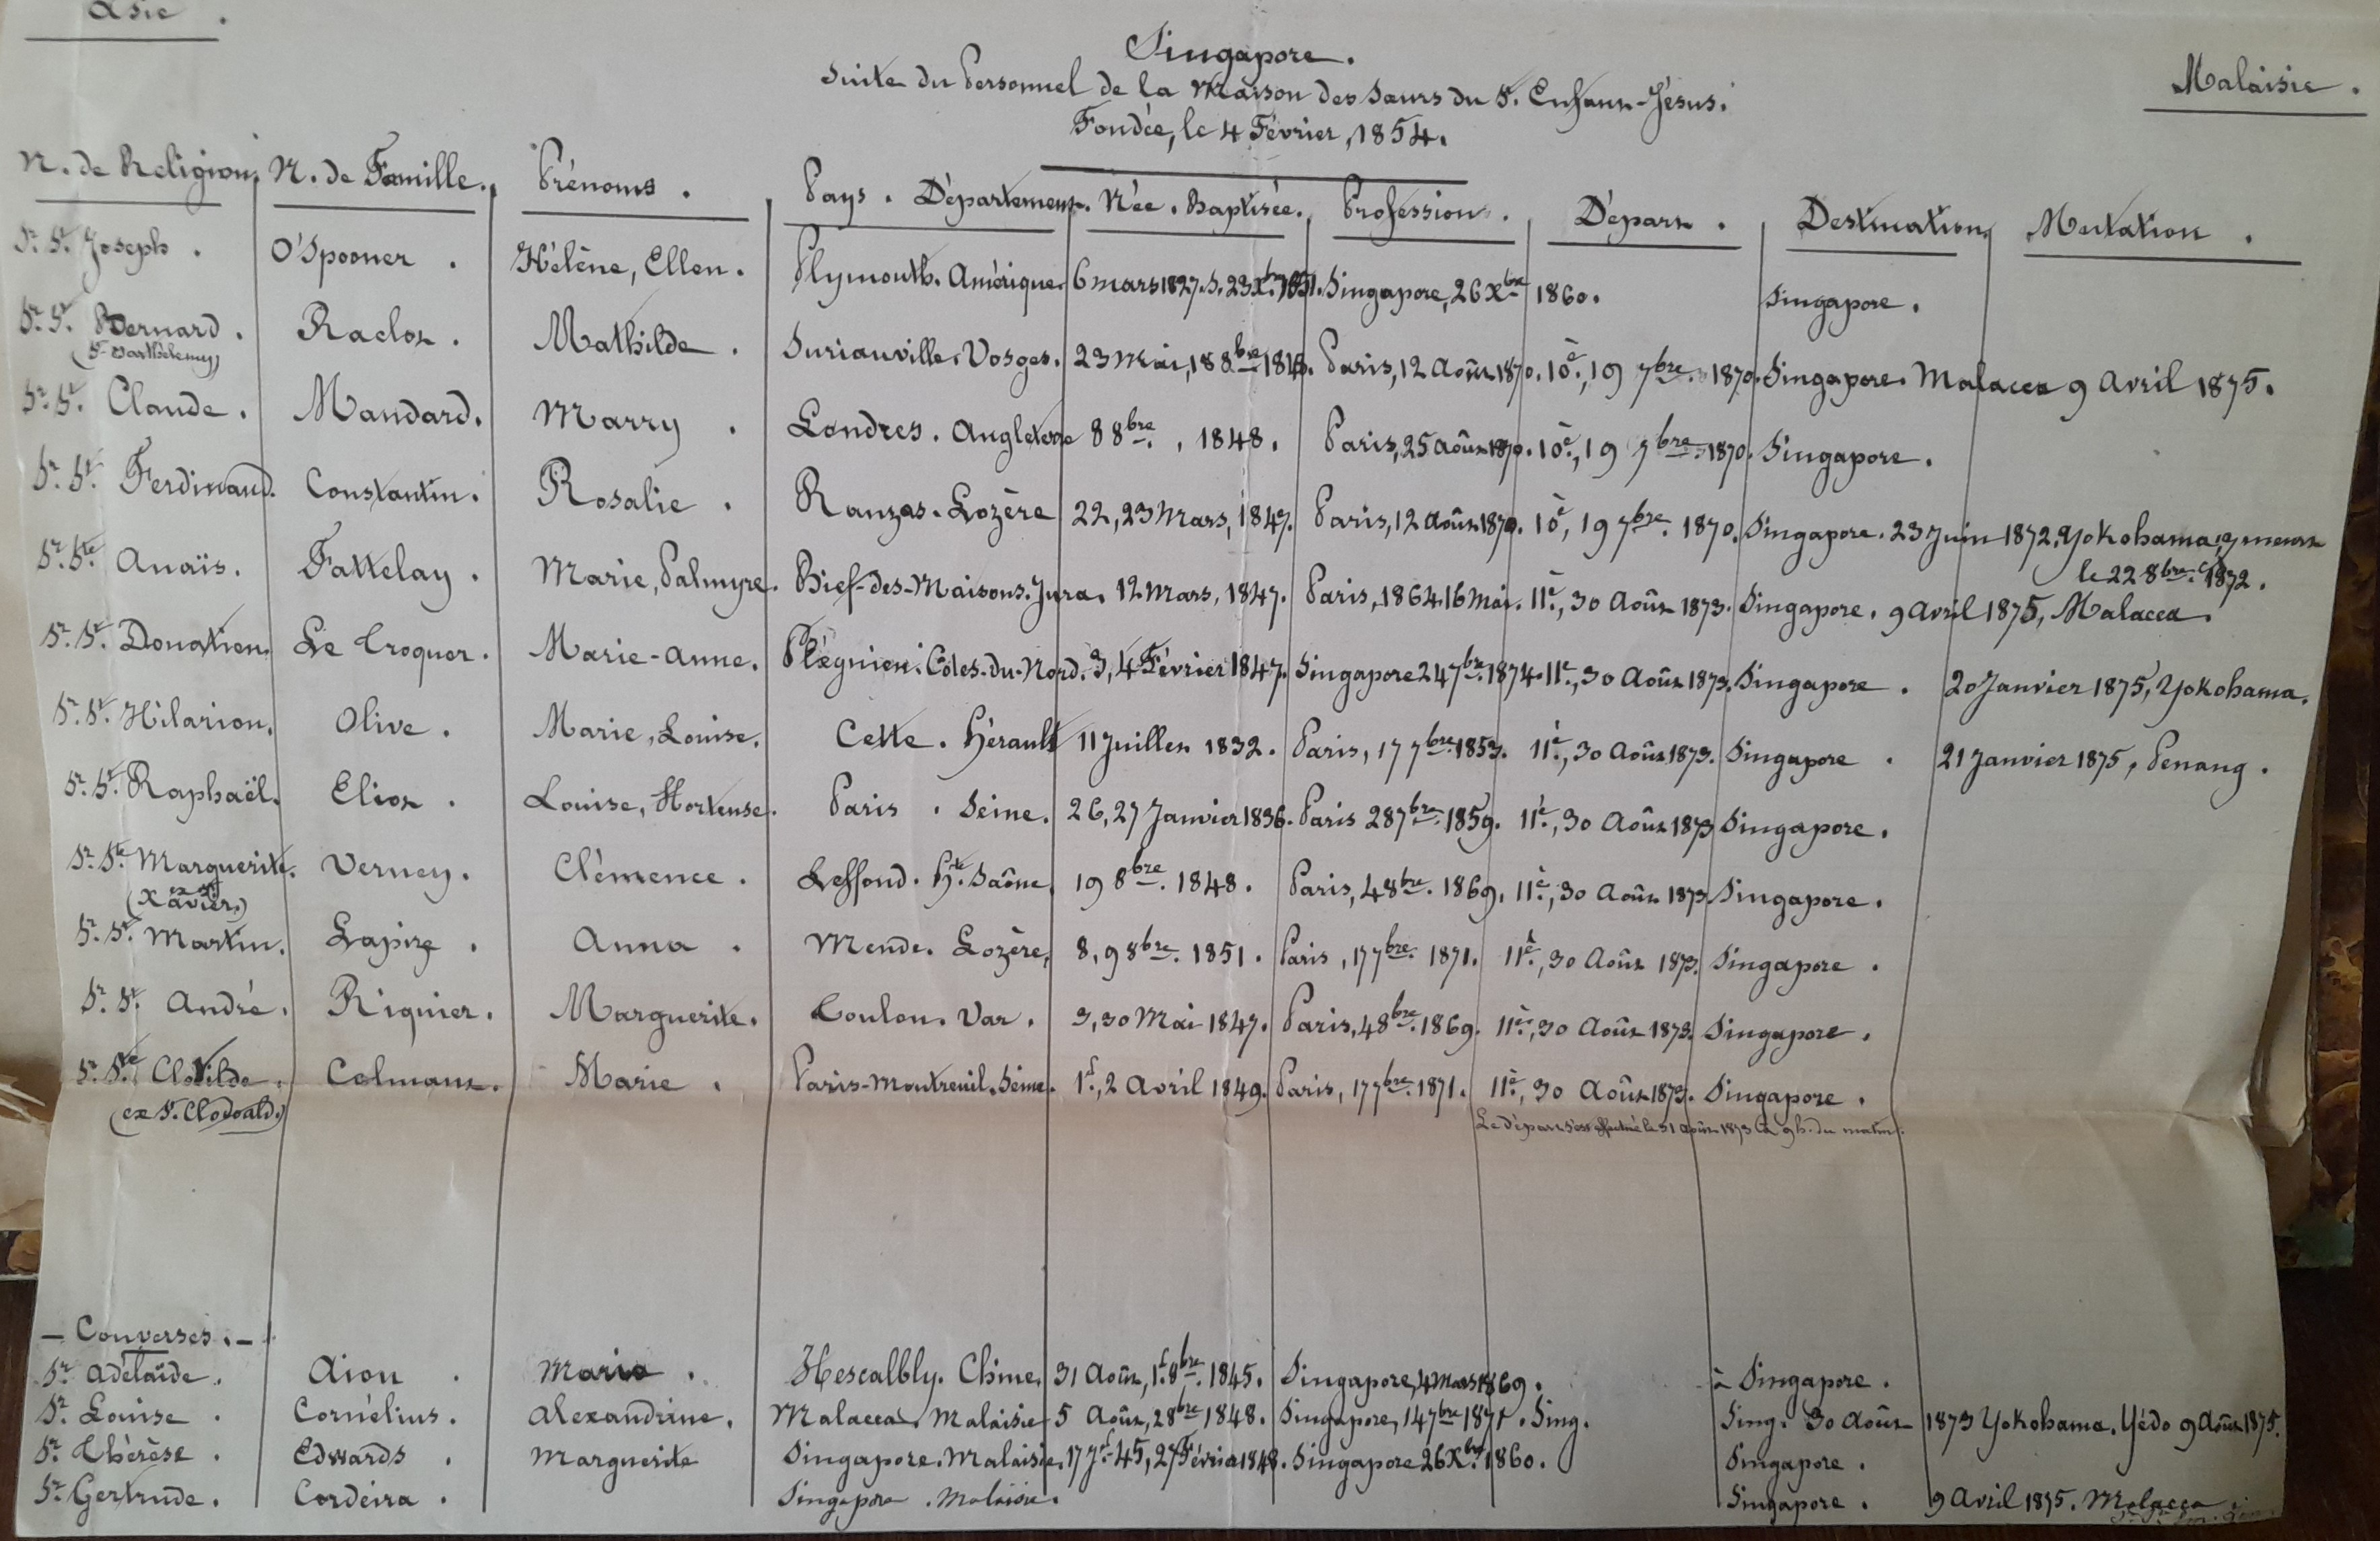 Asie .
Singapore.
Malaisie .
Suite du Personnel de la Maison des Sœurs du St. Enfant-Jésus.
Fondée, le 4 Février, 1854.
N. de Religion. N. de Famille. Prénoms . Pays . Département. Née . Baptisée. Profession . Départ . Destination Mutation .
Sr. St. Joseph . O'Spooner . Hélène, Ellen. Plymouth. Amérique. 6 mars 1827. S. 23 Xbre 1851. Singapore, 26 Xbre 1860. Singapore .
Sr. St. Bernard . Raclot . Mathilde . Suriauville. Vosges. 23 Mai, 18 8bre 1845. Paris, 12 Août 1870. 10e., 19 7bre. 1870. Singapore. Malacca 9 Avril 1875.
(St. Barthélemy)
Sr. St. Claude . Mandard. Marry . Londres. Angleterre 8 8bre. , 1848. Paris, 25 Août 1870. 10e., 19 7bre. 1870. Singapore .
Sr. St. Ferdinand. Constantin . Rosalie . Ranzas. Lozère 22, 23 Mars, 1847. Paris, 12 Août 1870. 10e, 19 7bre. 1870. Singapore. 23 Juin 1872, Yokohama, y meurt
le 22 8bre. 1872.
Sr. Ste Anaïs. Fattelay . Marie, Palmyre. Bief-des-Maisons. Jura. 12 Mars, 1847. Paris, 1864 16 Mai. 11e., 30 Août 1873. Singapore. 9 Avril 1875, Malacca.
Sr. St. Donatien. Le Troquer. Marie-Anne. Plégnien. Côtes-du-Nord. 3, 4 Février 1847. Singapore 24 7bre. 1874. 11e., 30 Août 1873. Singapore . 20 Janvier 1875, Yokohama.
Sr. St. Hilarion. Olive . Marie, Louise. Cette . Hérault 11 Juillet 1832. Paris, 17 7bre. 1853. 11e., 30 Août 1873. Singapore . 21 Janvier 1875, Penang .
Sr. St. Raphaël. Eliot . Louise, Hortense. Paris . Seine. 26, 27 Janvier 1836. Paris 28 7bre. 1859. 11e., 30 Août 1873 Singapore .
Sr. Ste Marguerite. Verney . Clémence . Leffond. Hte. Saône. 19 8bre. 1848. Paris, 4 8bre. 1869. 11e., 30 Août 1873 Singapore .
(ex St. Xavier.)
Sr. St. Martin. Lapize . Anna . Mende. Lozère. 8, 9 8bre. 1851. Paris, 17 7bre. 1871. 11e., 30 Août 1873. Singapore .
Sr. St. André. Riquier. Marguerite. Toulon. Var . 3, 30 Mai 1847. Paris, 4 8bre. 1869. 11e., 30 Août 1873. Singapore .
Sr. Ste. Clotilde . Colmant . Marie . Paris-Montreuil. Seine. 1er., 2 Avril 1849. Paris, 17 7bre. 1871. 11e., 30 Août 1873. Singapore .
(ex St. Clodoald.) Le départ s'est effectué le 31 Août 1873 à 9 h. du matin.
- Converses. -
Sr. Adélaïde . Aïou . Maria . Hescalbly. Chine. 31 Août, 1er. 8bre. 1845. Singapore, 4 mars 1869 . à Singapore .
Sr. Louise . Cornélius. Alexandrine. Malacca. Malaisie 5 Août, 28 bre. 1848. Singapore, 14 7bre 1871 . Sing. Sing. 30 Août 1873 Yokohama. Yédo 9 Août 1875.
Sr. Thérèse . Edwards . Marguerite Singapore. Malaisie. 17 Jet. 45, 27 Février 1848. Singapore 26 Xbre. 1860. Singapore .
Sr. Gertrude . Cordeira . Singapore . Malaisie. Singapore . 9 Avril 1875. Malacca .